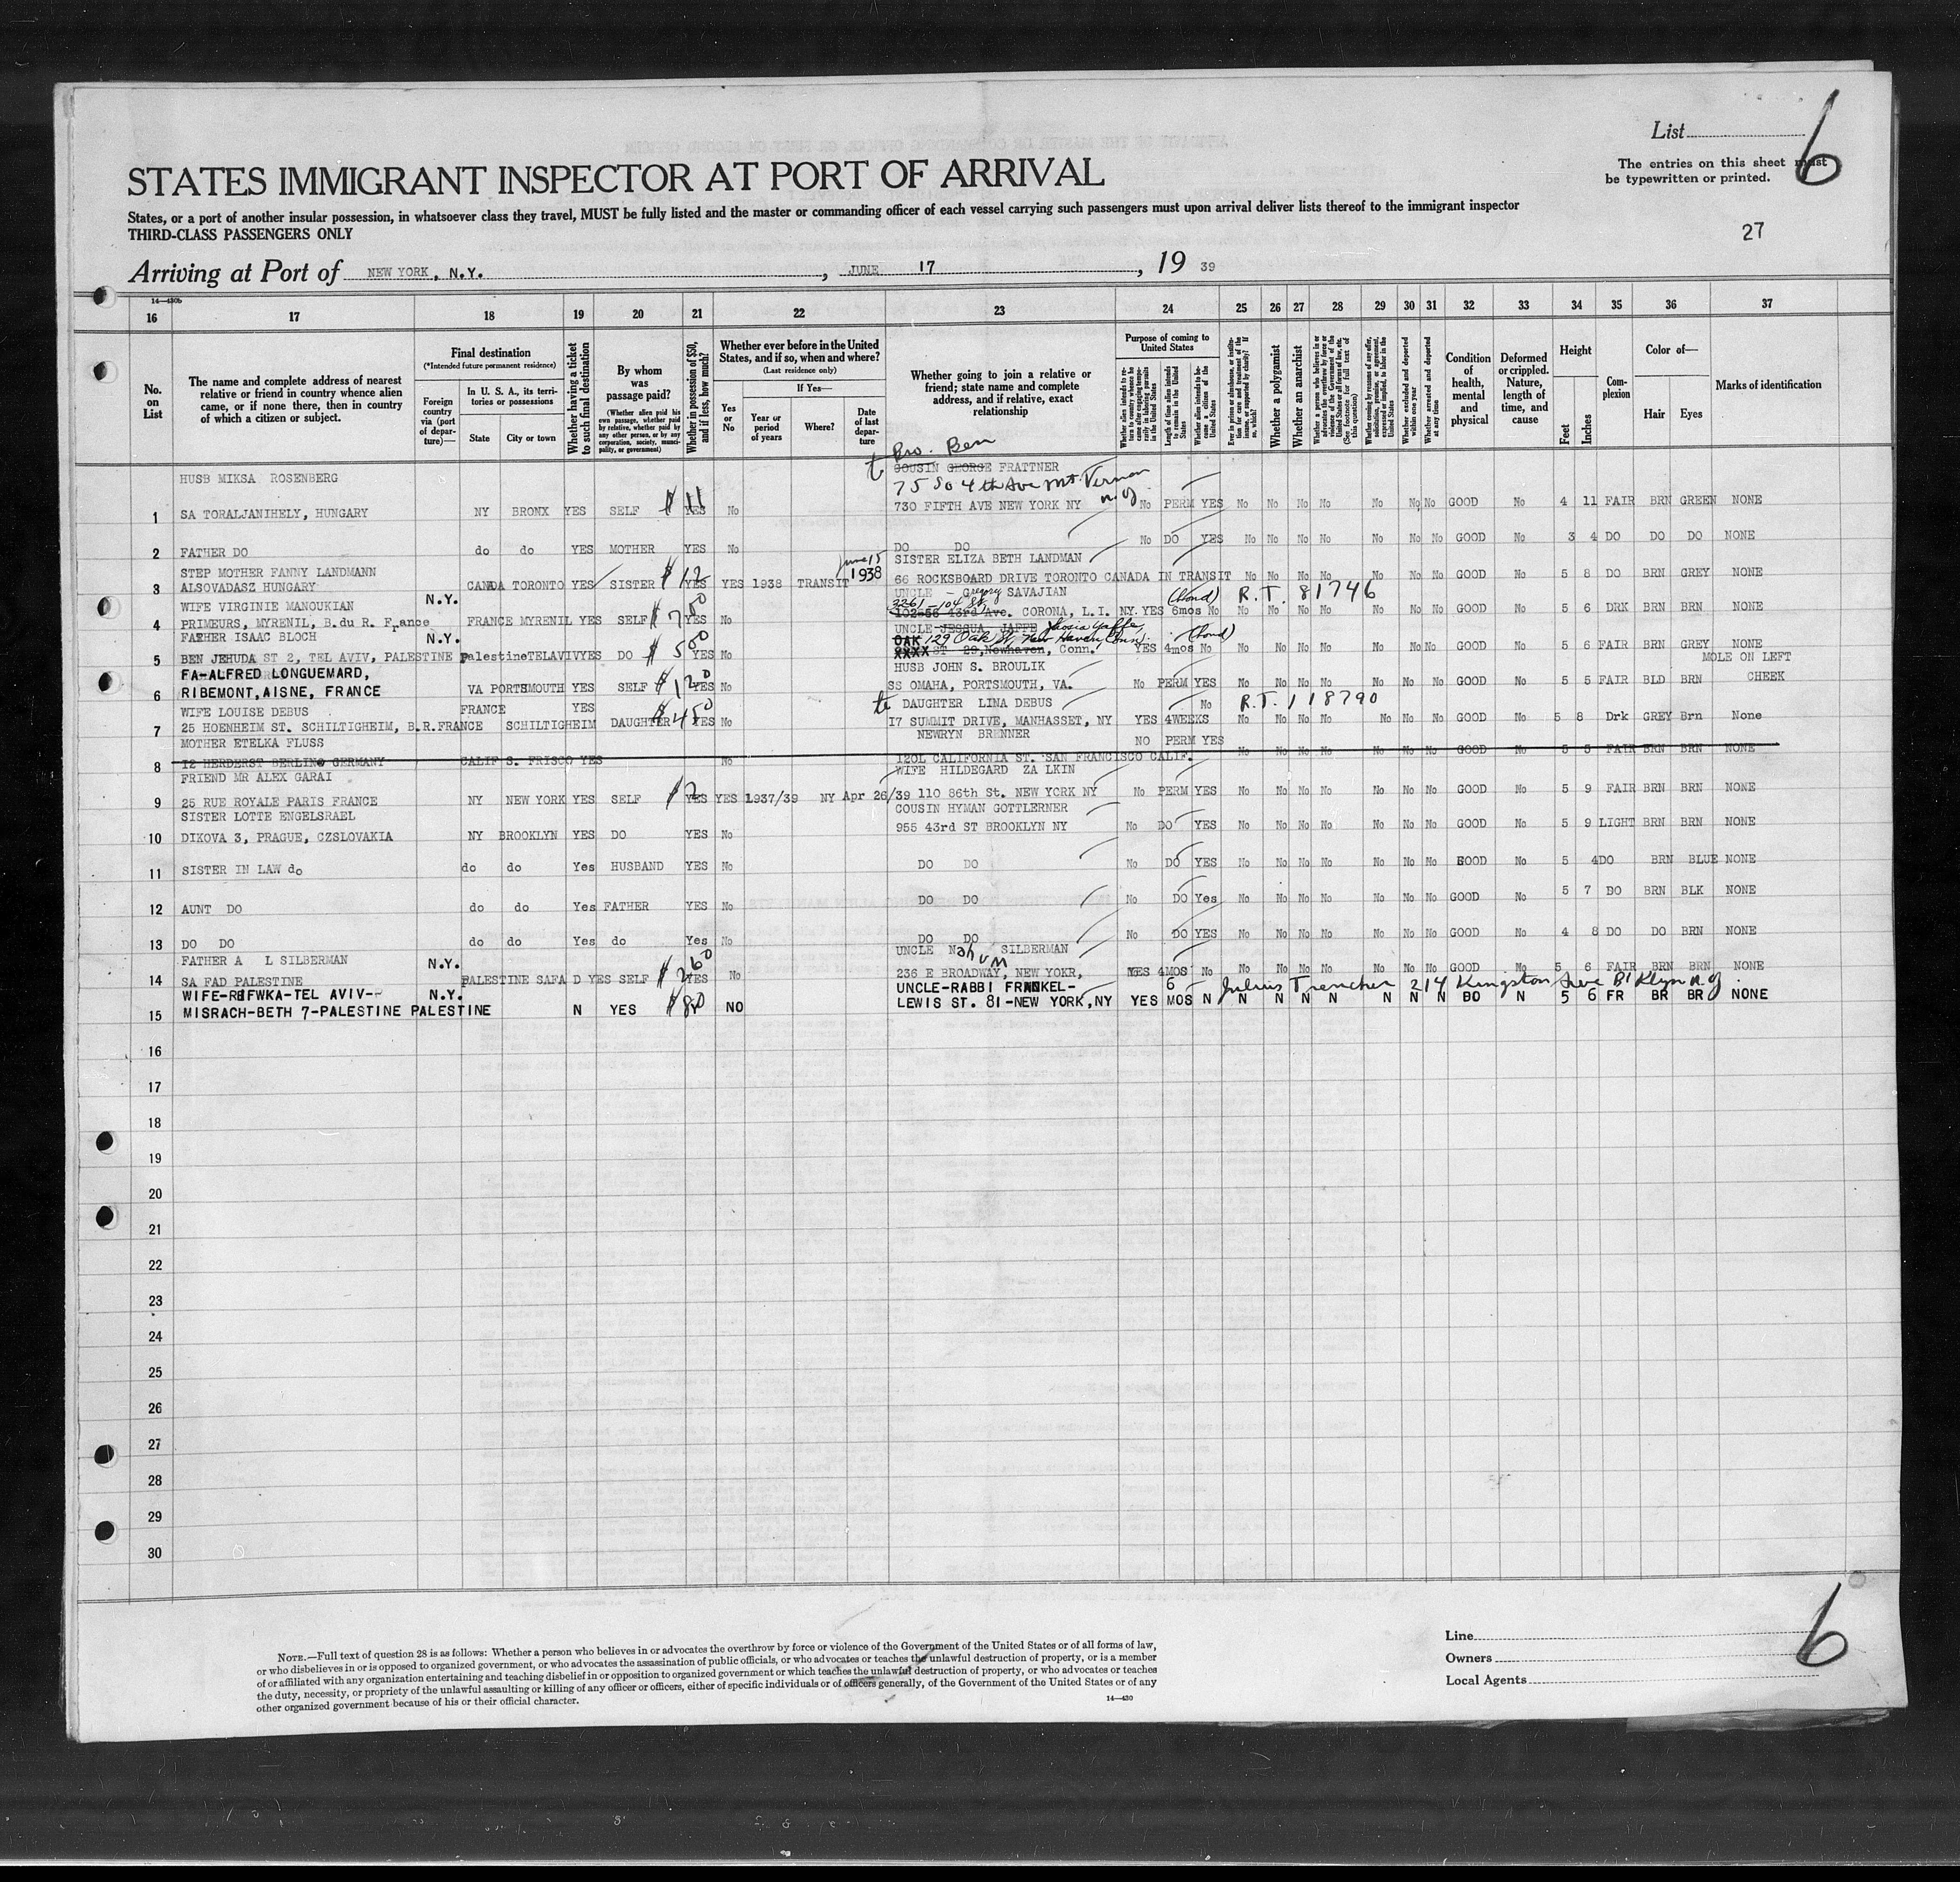 List 6
The entries on this sheet must
be typewritten or printed.
STATES IMMIGRANT INSPECTOR AT PORT OF ARRIVAL
States, or a port of another insular possession, in whatsoever class they travel, MUST be fully listed and the master or commanding officer of each vessel carrying such passengers must upon arrival deliver lists thereof to the immigrant inspector
THIRD-CLASS PASSENGERS ONLY
27
Arriving at Port of NEW YORK, N.Y., JUNE 17, 19 39
14—430b
16 17 18 19 20 21 22 23 24 25 26 27 28 29 30 31 32 33 34 35 36 37
No. on List
The name and complete address of nearest relative or friend in country whence alien came, or if none there, then in country of which a citizen or subject.
Final destination
(*Intended future permanent residence)
Foreign country via (port of departure)—
In U. S. A., its territories or possessions
State
City or town
Whether having a ticket to such final destination
By whom was passage paid?
(Whether alien paid his own passage, whether paid by relative, whether paid by any other person, or by any corporation, society, municipality, or government)
Whether in possession of $50, and if less, how much?
Whether ever before in the United States, and if so, when and where?
(Last residence only)
Yes or No
If Yes—
Year or period of years
Where?
Date of last departure
Whether going to join a relative or friend; state name and complete address, and if relative, exact relationship
Purpose of coming to United States
Length of time alien intends to remain in the United States
Whether alien intends to become a citizen of the United States
Whether a polygamist
Whether an anarchist
Whether excluded and deported within one year
Whether arrested and deported at any time
Condition of health, mental and physical
Deformed or crippled. Nature, length of time, and cause
Height
Feet
Inches
Complexion
Color of—
Hair
Eyes
Marks of identification
t Bro. Ben
HUSB MIKSA ROSENBERG COUSIN GEORGE FRATTNER
75 So 4th Ave Mt. Vernon N.Y.
1 SA TORALJANIHELY, HUNGARY NY BRONX YES SELF $11 YES No 730 FIFTH AVE NEW YORK NY No PERM YES No No No No No No No GOOD No 4 11 FAIR BRN GREEN NONE
2 FATHER DO do do YES MOTHER YES No DO DO No DO YES No No No No No No No GOOD No 3 4 DO DO DO NONE
STEP MOTHER FANNY LANDMANN June 15 SISTER ELIZA BETH LANDMAN
3 ALSOVADASZ HUNGARY CANADA TORONTO YES SISTER $12 YES YES 1938 TRANSIT 1938 66 ROCKSBOARD DRIVE TORONTO CANADA IN TRANSIT No No No No No No No GOOD No 5 8 DO BRN GREY NONE
WIFE VIRGINIE MANOUKIAN N.Y. UNCLE - Gregory SAVAJIAN (bond) R.T. 81746
3261-104 St.
4 PRIMEURS, MYRENIL, B.du R. France FRANCE MYRENIL YES SELF $700 YES No 102-56 43rd Ave. CORONA, L.I. NY. YES 6mos No No No No No No No No GOOD No 5 6 DRK BRN BRN NONE
FATHER ISAAC BLOCH N.Y. UNCLE JESSUA JAFFE Yaffe
OAK 129 Oak St, New Haven Conn. (bond)
5 BEN JEHUDA ST 2, TEL AVIV, PALESTINE Palestine TELAVIV YES DO $500 YES No XXXX ST 29, Newhaven, Conn. YES 4mos No No No No No No No No GOOD No 5 6 FAIR BRN GREY NONE
FA-ALFRED LONGUEMARD, HUSB JOHN S. BROULIK MOLE ON LEFT
6 RIBEMONT, AISNE, FRANCE VA PORTSMOUTH YES SELF $120 YES No SS OMAHA, PORTSMOUTH, VA. No PERM YES No No No No No No No GOOD No 5 5 FAIR BLD BRN CHEEK
WIFE LOUISE DEBUS FRANCE YES t DAUGHTER LINA DEBUS No R.T. 118790
7 25 HOENHEIM ST. SCHILTIGHEIM, B.R.FRANCE SCHILTIGHEIM DAUGHTER $450 YES No 17 SUMMIT DRIVE, MANHASSET, NY YES 4WEEKS No No No No No No No GOOD No 5 8 Drk GREY Brn None
MOTHER ETELKA FLUSS NEWRYN BRENNER NO PERM YES
8 12 HERDERST BERLIN GERMANY CALIF S. FRISCO YES No 120L CALIFORNIA ST. SAN FRANCISCO CALIF. No No No No No No No GOOD No 5 5 FAIR BRN BRN NONE
FRIEND MR ALEX GARAI WIFE HILDEGARD ZA LKIN
9 25 RUE ROYALE PARIS FRANCE NY NEW YORK YES SELF $2 YES YES 1937/39 NY Apr 26/39 110 86th St. NEW YORK NY No PERM YES No No No No No No No GOOD No 5 9 FAIR BRN BRN NONE
SISTER LOTTE ENGELSRAEL COUSIN HYMAN GOTTLERNER
10 DIKOVA 3, PRAGUE, CZSLOVAKIA NY BROOKLYN YES DO YES No 955 43rd ST BROOKLYN NY No DO YES No No No No No No No GOOD No 5 9 LIGHT BRN BRN NONE
11 SISTER IN LAW do do do Yes HUSBAND YES No DO DO No DO YES No No No No No No No GOOD No 5 4 DO BRN BLUE NONE
12 AUNT DO do do Yes FATHER YES No DO DO No DO Yes No No No No No No No GOOD No 5 7 DO BRN BLK NONE
13 DO DO do do Yes do Yes No DO DO No DO YES No No No No No No No GOOD No 4 8 DO DO BRN NONE
FATHER A L SILBERMAN N.Y. UNCLE NahuM SILBERMAN
14 SA FAD PALESTINE PALESTINE SAFA D YES SELF $260 YES No 236 E BROADWAY, NEW YOKR, YES 4MOS No No No No No No No No GOOD No 5 6 FAIR BRN BRN NONE
WIFE-RIFWKA-TEL AVIV- N.Y. UNCLE-RABBI FRANKEL- 6 Julius Trencher 214 Kingston Ave Bklyn N.Y.
15 MISRACH-BETH 7-PALESTINE PALESTINE N YES $80 NO LEWIS ST. 81-NEW YORK,NY YES MOS N N N N N N N N BO N 5 6 FR BR BR NONE
16
17
18
19
20
21
22
23
24
25
26
27
28
29
30
NOTE.—Full text of question 28 is as follows: Whether a person who believes in or advocates the overthrow by force or violence of the Government of the United States or of all forms of law,
or who disbelieves in or is opposed to organized government, or who advocates the assassination of public officials, or who advocates or teaches the unlawful destruction of property, or is a member
of or affiliated with any organization entertaining and teaching disbelief in or opposition to organized government or which teaches the unlawful destruction of property, or who advocates or teaches
the duty, necessity, or propriety of the unlawful assaulting or killing of any officer or officers, either of specific individuals or of officers generally, of the Government of the United States or of any
other organized government because of his or their official character.
14—430
Line
Owners
Local Agents
6